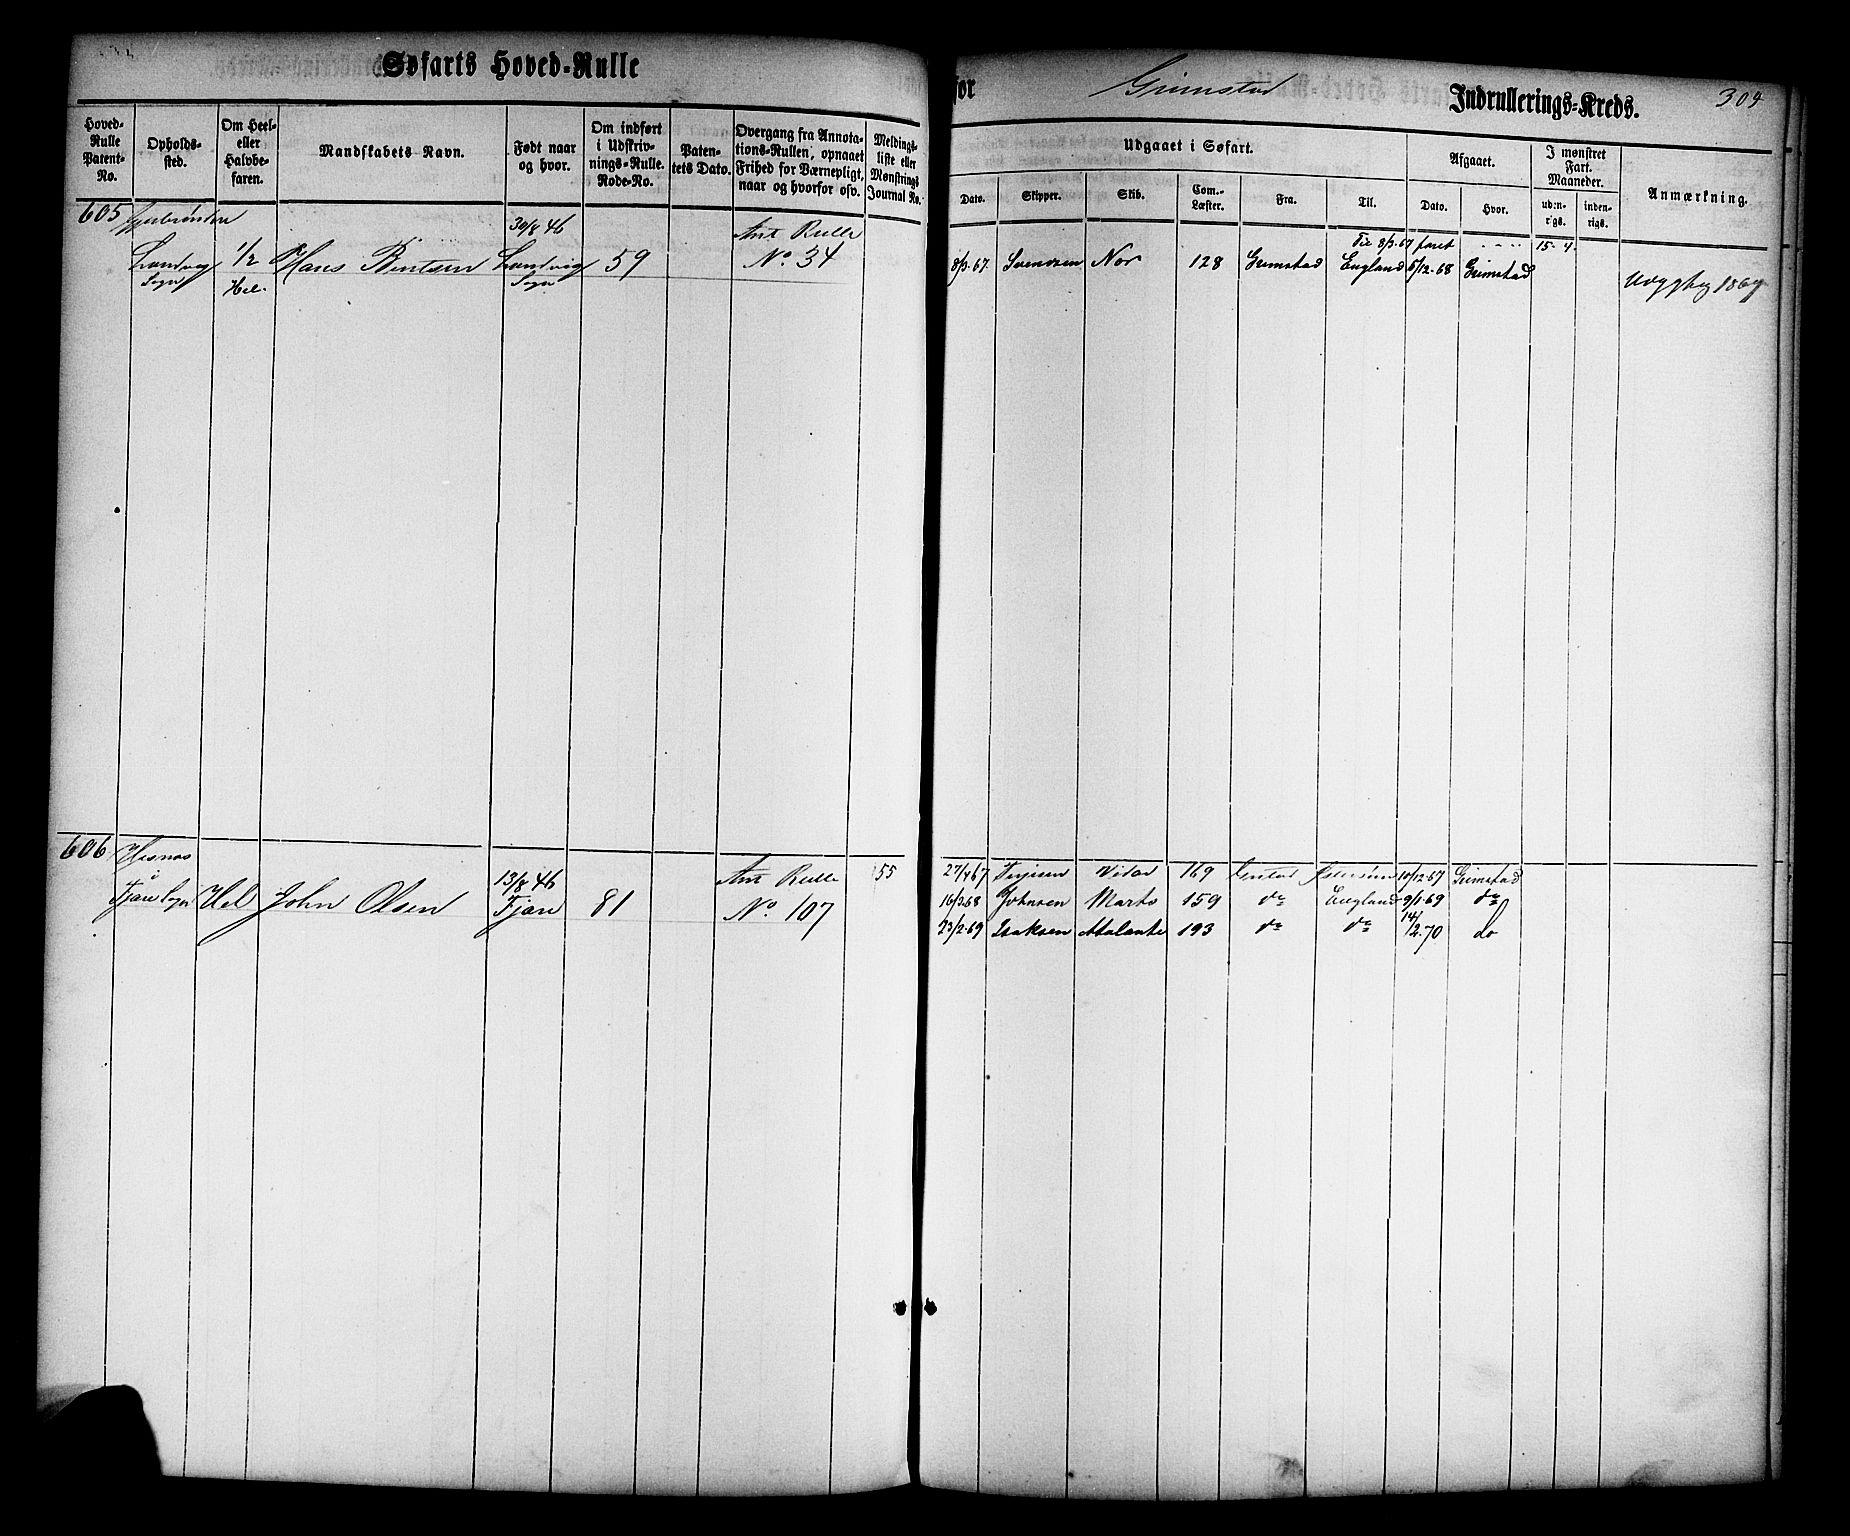 Søfarts Hoved-Rulle
for Grimstad Indrullerings-Kreds. 304
Hoved-Rulle Patent-No.
Opholds-sted.
Om Heel- eller Halvbe-faren.
Mandskabets Navn.
Født naar og hvor.
Om indført i Udskriv-nings-Rulle. Rode-No.
Paten-tets Dato.
Overgang fra Annota-tions-Rullen, opnaaet Frihed for Værnepligt, naar og hvorfor osv.
Meldings-liste eller Mønstrings Journal No.
Udgaaet i Søfart.
Dato.
Skipper.
Skib.
Com.-Læster.
Fra.
Til.
Afgaaet.
Dato.
Hvor.
I mønstret Fart. Maaneder.
uden-rigs.
inden-rigs.
Anmærkning.
605 30/8 46 Ant Rulle
Landvig 1/2 Hans Bentsen Landvig 59 No. 34
Sogn Hel. Sogn
Til 8/3.67 faret " " " 15 - 4
8/3.67. Svendsen Nor 128 Grimstad England 5/12.68 Grimstad
1869
606 Hesnæs
i 13/8 46 Ant Rulle 55
Fjære Sogn Hel John Olsen Fjære 81 No. 107
27/4 67 Terjesen Vidar 169 10/12.67 Grimstad
16/3.68 Johnsen Marts 159 do England 9/1.69 do
23/2.69 Isaksen Atalante 193 do do 14/2.70 do